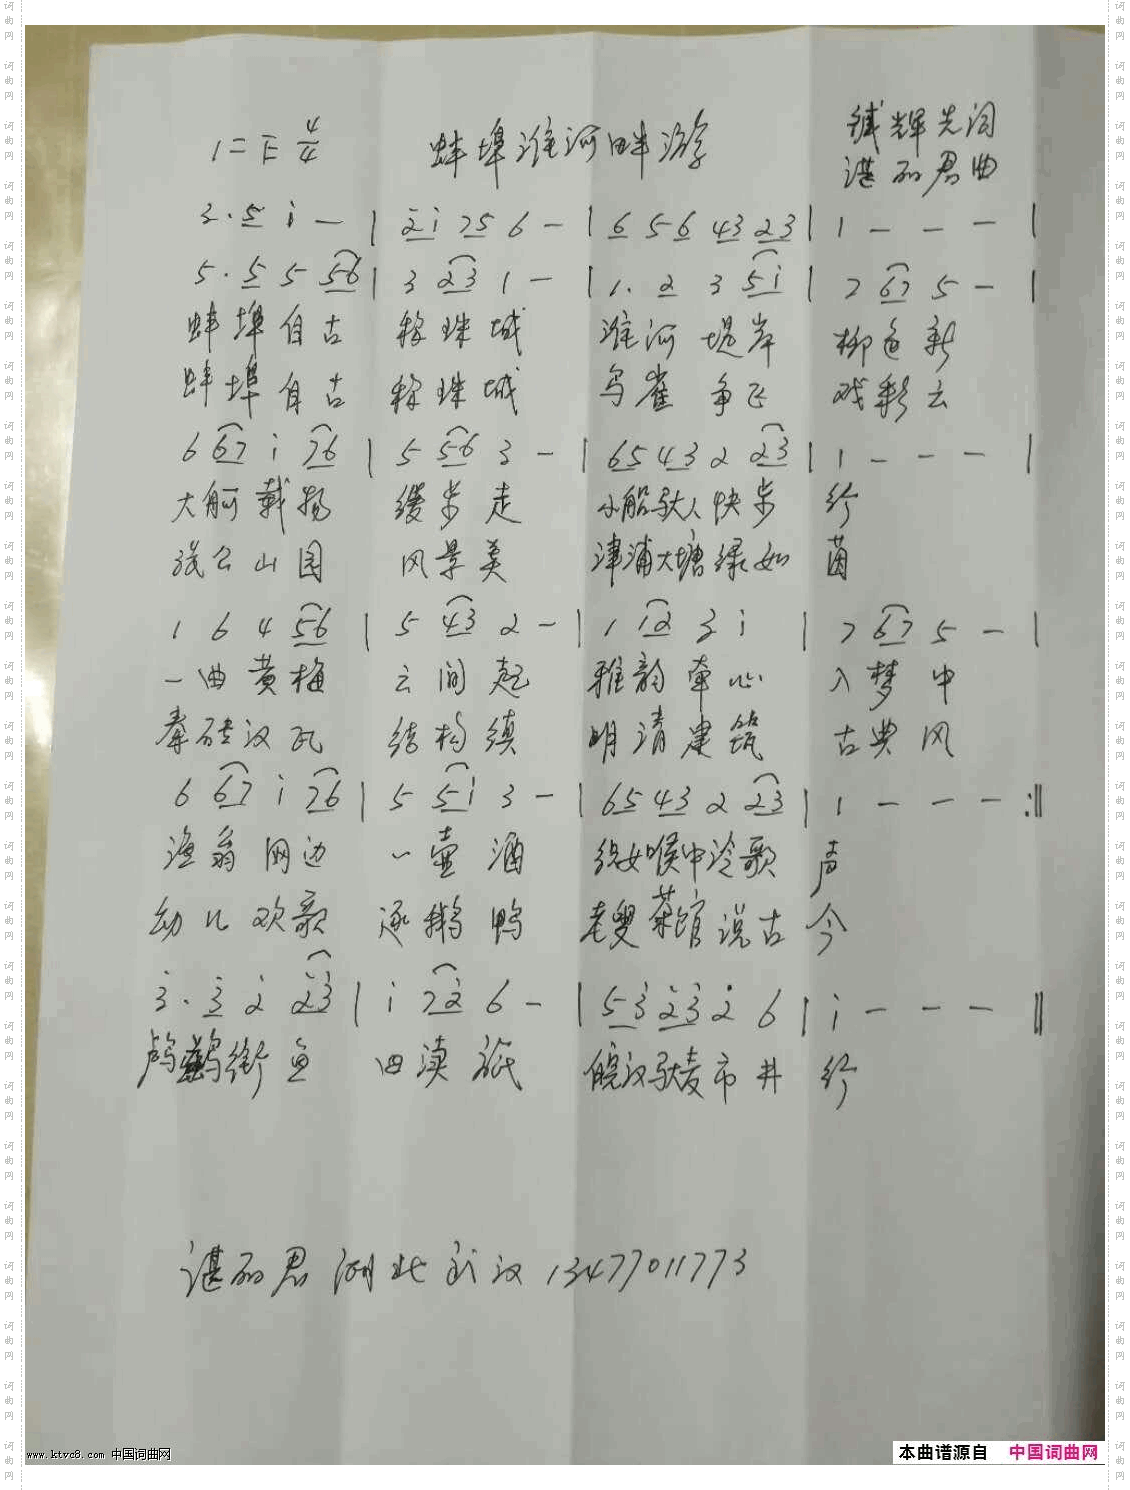 1=E 4/4 蚌埠淮河畔游 铖辉先词
谌丽君曲
3·5 i — | 2i 75 6 — | 6 5 6 43 23 | 1 — — — |
5·5 5 56 | 3 23 1 — | 1·2 3 5i | 7 67 5 — |
蚌埠自古 称珠城 淮河堤岸 柳色新
蚌埠自古 称珠城 鸟雀争飞 戏彩云
6 67 i 76 | 5 56 3 — | 65 43 2 23 | 1 — — — |
大舸载物 缓步走 小船驮人快步 行
张公山园 风景美 津浦大塘绿如 茵
1 6 4 56 | 5 43 2 — | 1 12 3 i | 7 67 5 — |
一曲黄梅 云间起 雅韵牵心 入梦中
秦砖汉瓦 结构缜 明清建筑 古典风
6 67 i 76 | 5 5i 3 — | 65 43 2 23 | 1 — — — :||
渔翁网边 一壶酒 织女喉中泠歌 声
幼儿欢歌 逐鹅鸭 老叟茶馆说古 今
3·3 2 23 | i 72 6 — | 53 23 2 6 | i — — — ||
鸬鹚衔鱼 皖汉驮麦市井 行
谌丽君 湖北武汉 13477011773
www.ktvc8.com 中国词曲网
本曲谱源自 中国词曲网